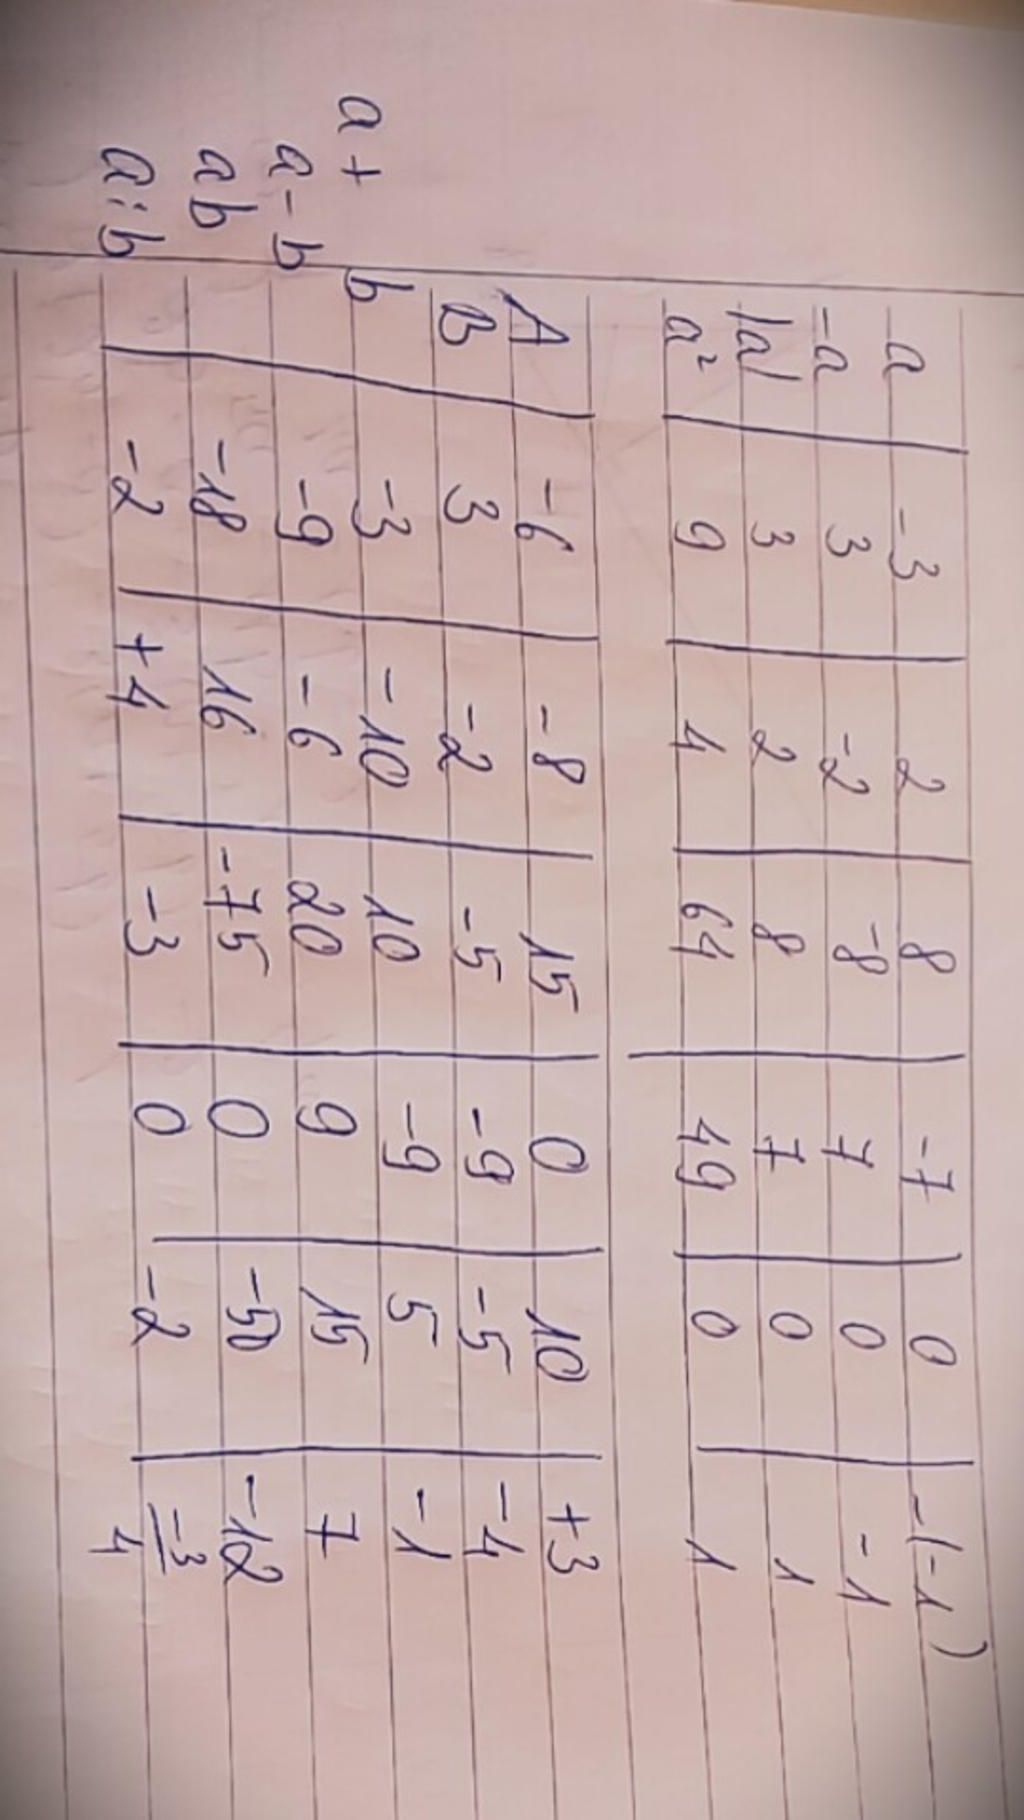 a -3 2 8 -7 0 -(-1)
-a 3 -2 -8 7 0 -1
|a| 3 2 8 7 0 1
a² 9 4 64 49 0 1
A -6 -8 15 0 10 +3
B 3 -2 -5 -9 -5 -4
a + b -3 -10 10 -9 5 -1
a - b -9 -6 20 9 15 7
ab -18 16 -75 0 -50 -12
a:b -2 +4 -3 0 -2 -3/4